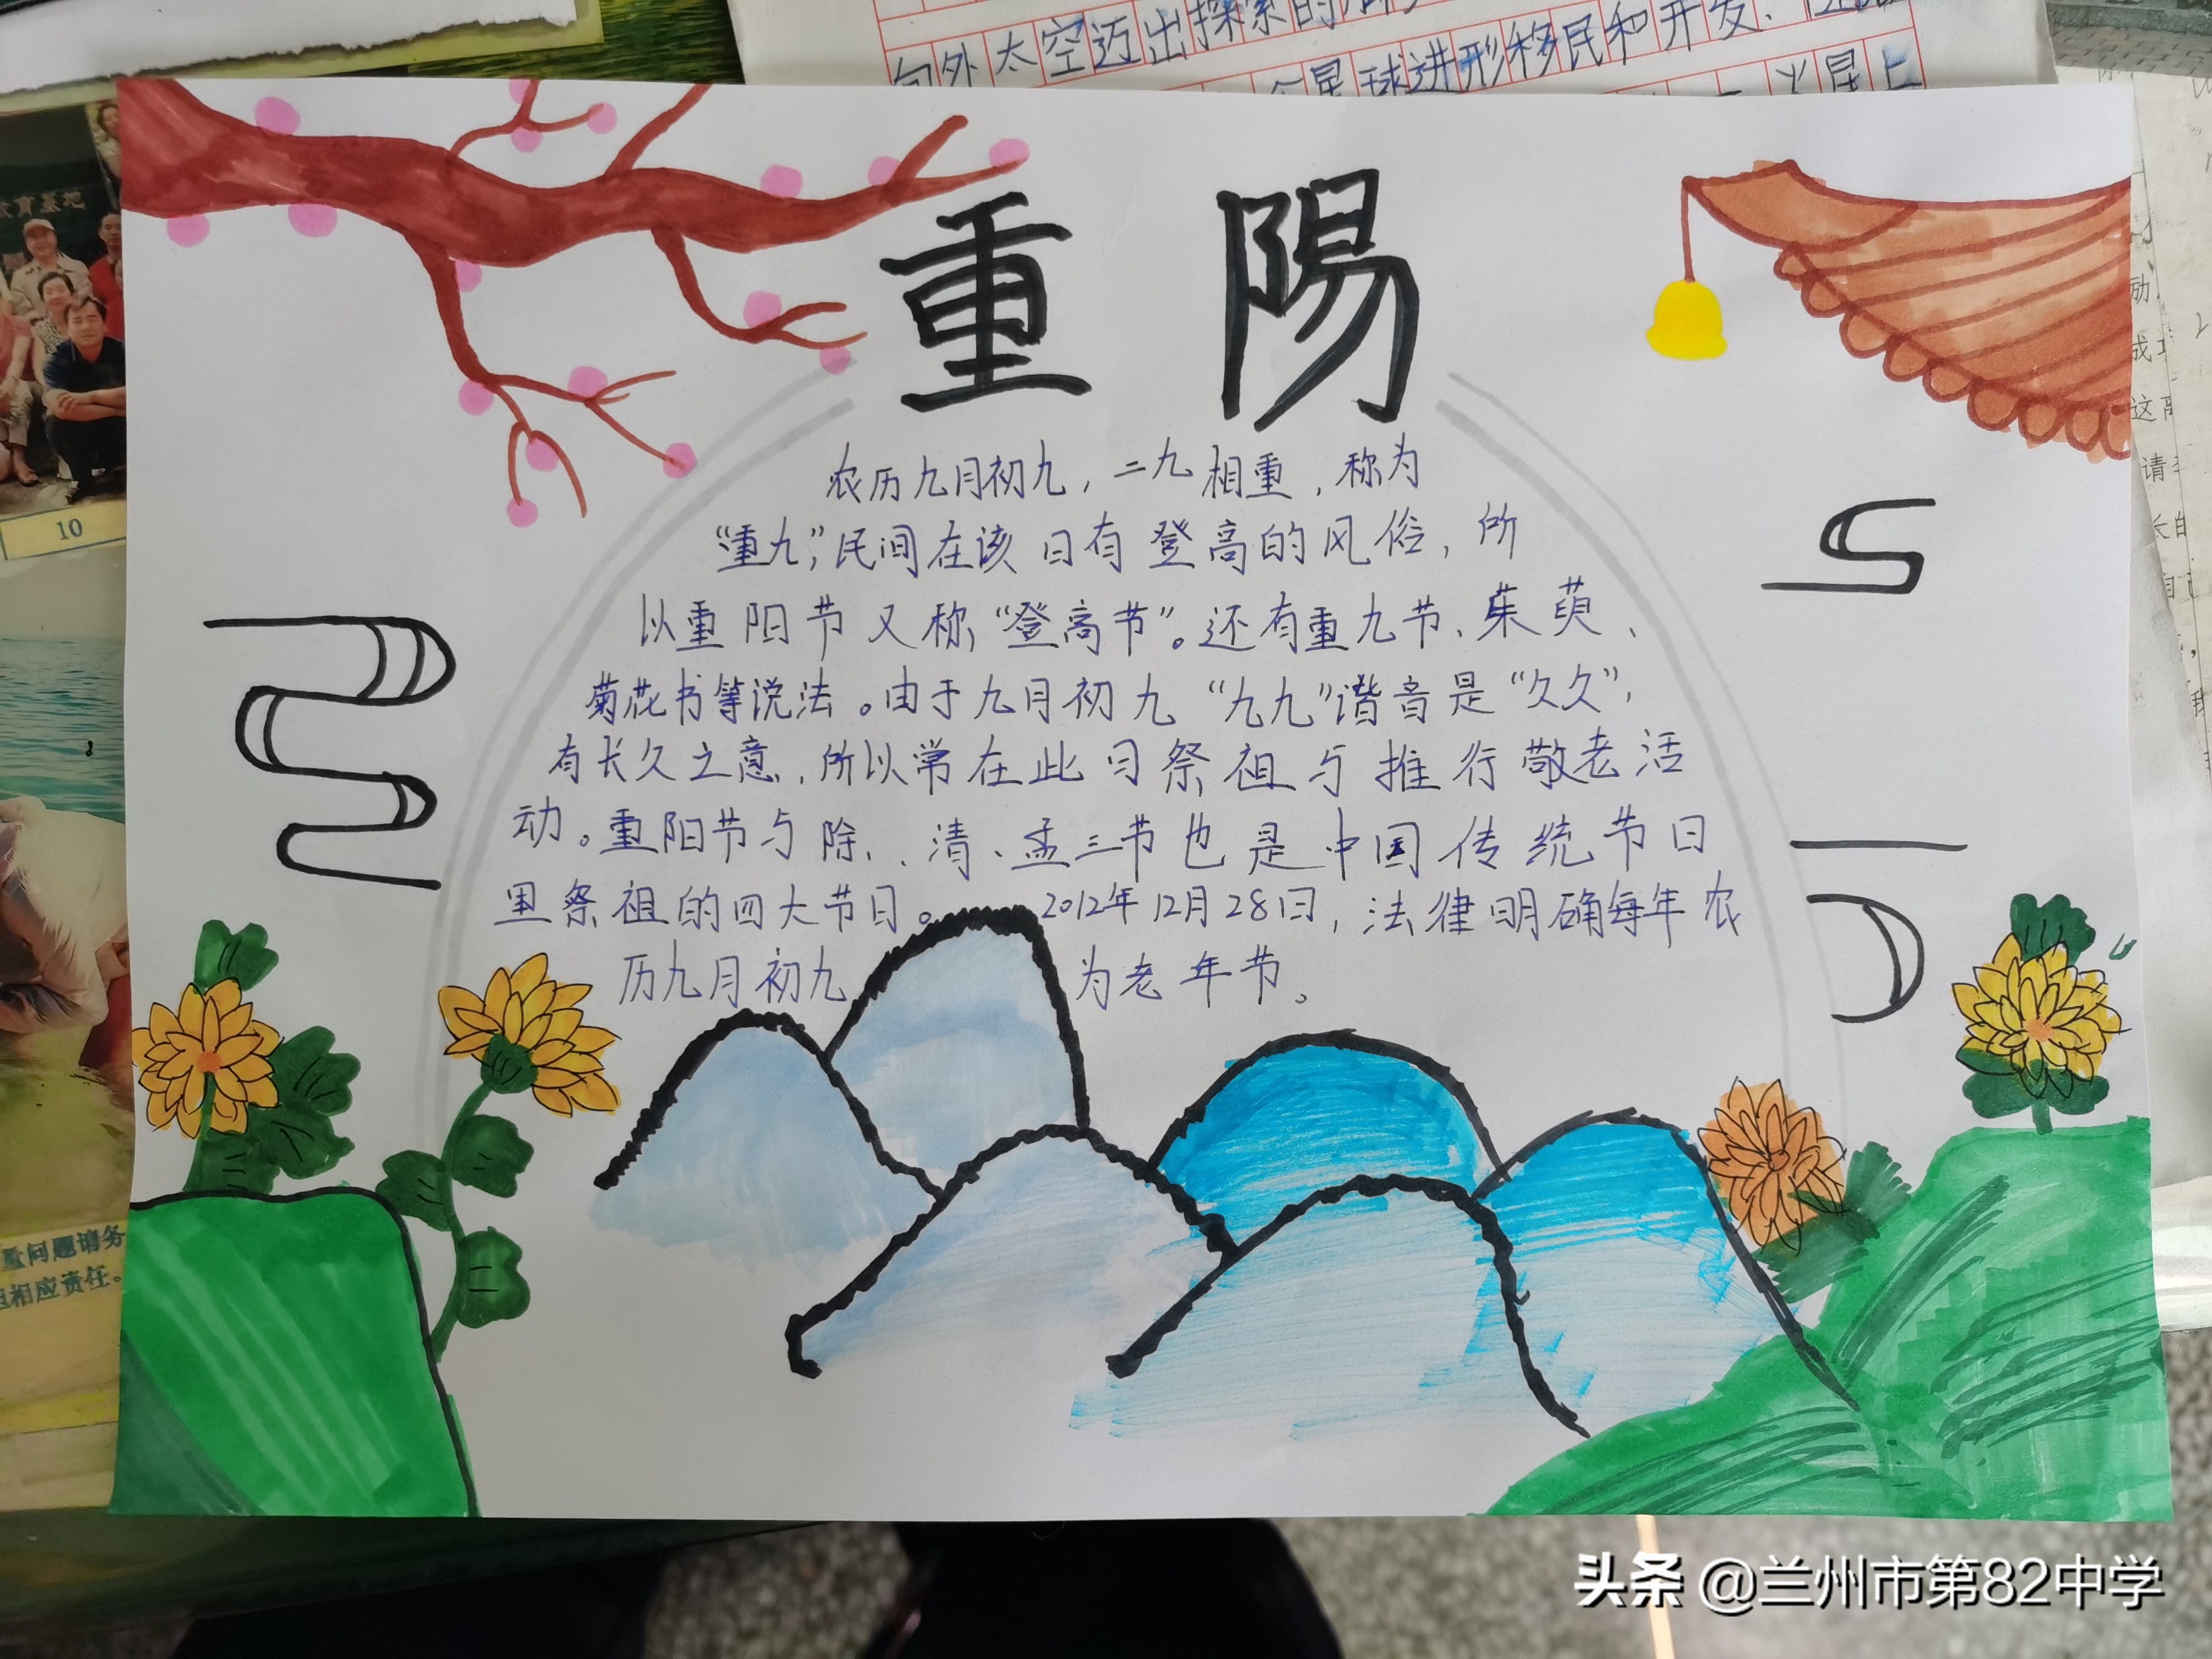 向外太空迈出探索的
星球进形移民和开发、
火星上
教育基地
10
重陽
农历九月初九，二九相重，称为
“重九”，民间在该日有登高的风俗，所
以重阳节又称“登高节”。还有重九节、茱萸、
菊花书等说法。由于九月初九“九九”谐音是“久久”，
有长久之意，所以常在此日祭祖与推行敬老活
动。重阳节与除、清、盂三节也是中国传统节日
里祭祖的四大节日。2012年12月28日，法律明确每年农
历九月初九为老年节。
量问题请务
相应责任。
头条 @兰州市第82中学